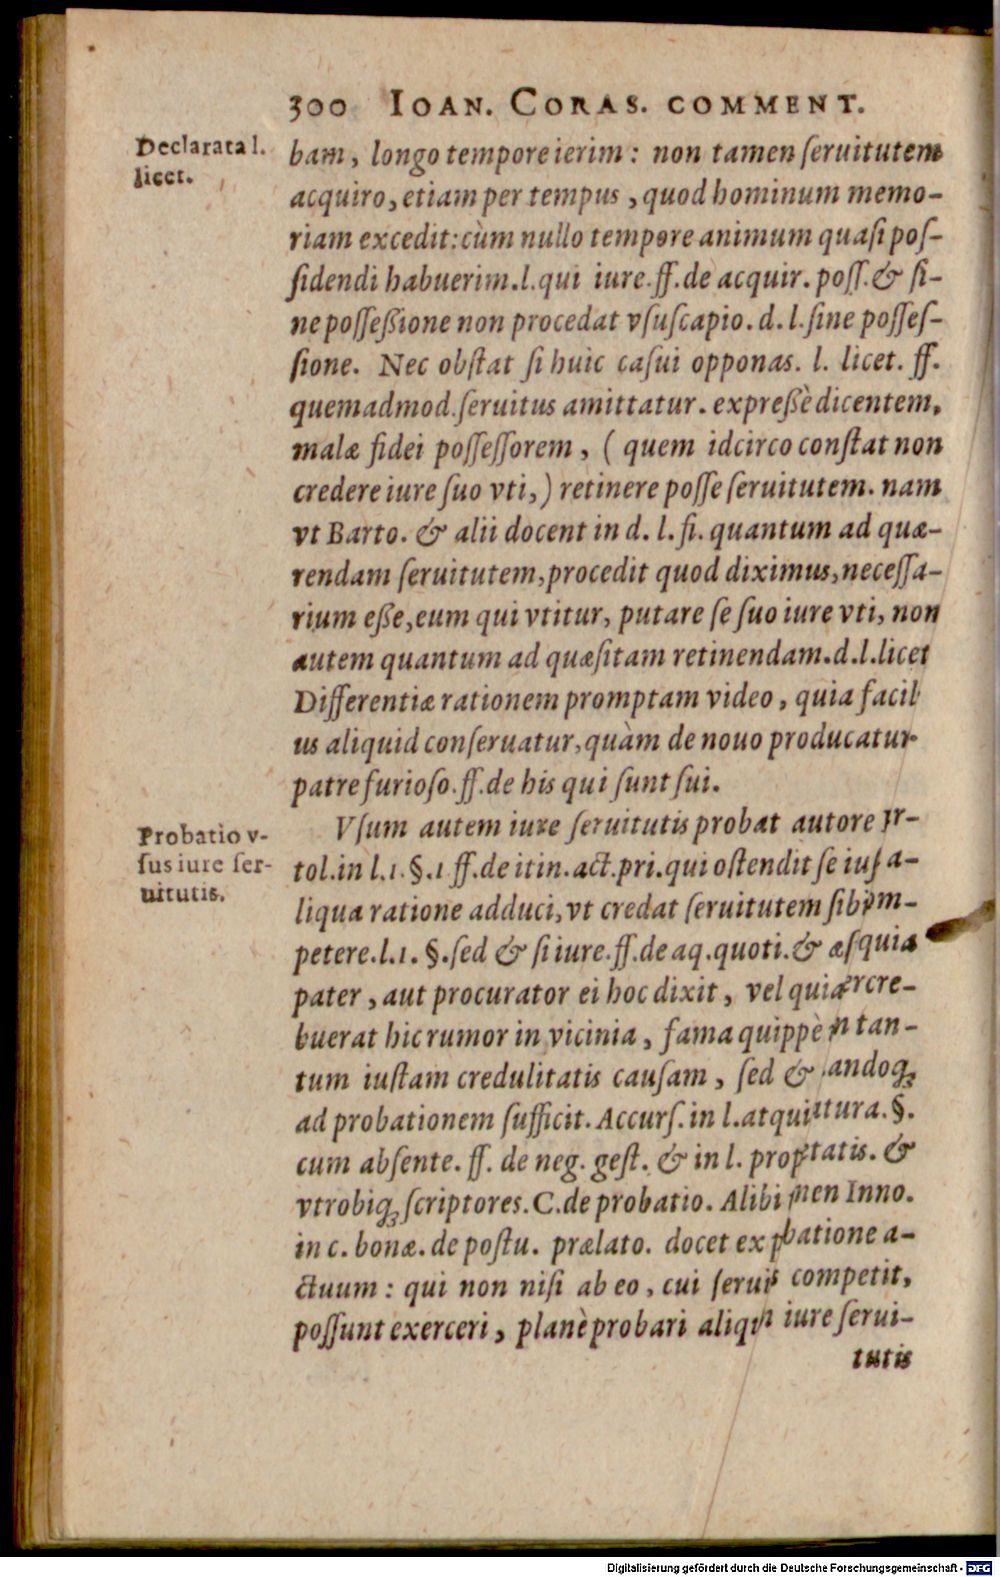 300 IOAN. CORAS. COMMENT.
Declarata l.
licet.
bam, longo tempore ierim: non tamen ſeruitutem
acquiro, etiam per tempus, quod hominum memo-
riam excedit: cùm nullo tempore animum quaſi poſ-
ſidendi habuerim. l. qui iure. ff. de acquir. poſſ. & ſi-
ne poſſeßione non procedat vſuſcapio. d. l. ſine poſſeſ-
ſione. Nec obſtat ſi huic caſui opponas. l. licet. ff.
quemadmod. ſeruitus amittatur. expreßè dicentem,
malæ fidei poſſeſſorem, (quem idcirco conſtat non
credere iure ſuo vti,) retinere poſſe ſeruitutem. nam
vt Barto. & alii docent in d. l. ſi. quantum ad quæ-
rendam ſeruitutem, procedit quod diximus, neceſſa-
rium eße, eum qui vtitur, putare ſe ſuo iure vti, non
autem quantum ad quæſitam retinendam. d. l. licet
Differentiæ rationem promptam video, quia facil
us aliquid conſeruatur, quàm de nouo producatur.
patre furioſo. ff. de his qui ſunt ſui.
Probatio v-
ſus iure ſer-
uitutis.
Vſum autem iure ſeruitutis probat autore
tol. in l. 1. §. 1 ff. de itin. act. pri. qui oſtendit ſe a-
liqua ratione adduci, vt credat ſeruitutem
petere. l. 1. §. ſed & ſi iure. ff. de aq. quoti. & æſ quia
pater, aut procurator ei hoc dixit, vel quia rcre-
buerat hic rumor in vicinia, fama quippè n tan-
tum iuſtam credulitatis cauſam, ſed & andoq;
ad probationem ſufficit. Accurſ. in l. atqui tura. §.
cum abſente. ff. de neg. geſt. & in l. prop tatis. &
vtrobiq; ſcriptores. C. de probatio. Alibi men Inno.
in c. bonæ. de poſtu. prælato. docet ex batione a-
ctuum: qui non niſi ab eo, cui ſerui competit,
poſſunt exerceri, planè probari iure ſerui-
tutis
Digitalisierung gefördert durch die Deutsche Forschungsgemeinschaft - DFG